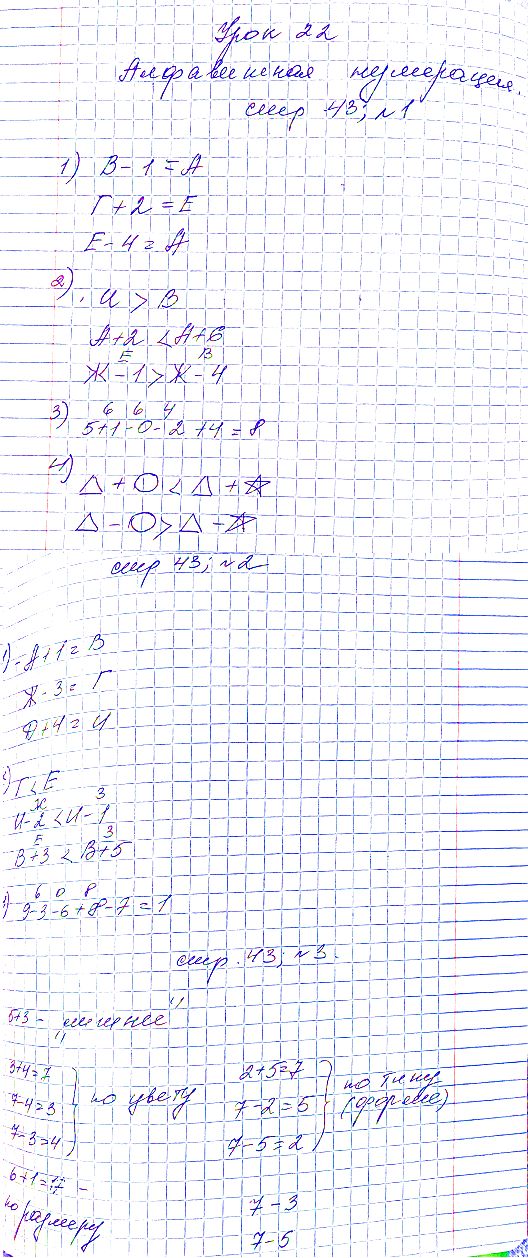 Урок 22
Алфавитная нумерация.
стр 43; №1
1) В - 1 = А
Г + 2 = Е
Е - 4 = А
2) И > В
А+2 < А+6
Е В
Ж - 1 > Ж - 4
6 6 4
3) 5+1-0-2+4=8
4) △ + ○ < △ + ☆
△ - ○ > △ - ☆
стр 43; №2
1) А+1=В
Ж-3=Г
Д+4=И
2) Г < Е
Ж З
И-2 < И-1
Е З
В+3 < В+5
6 0 8
3) 9-3-6+8-7=1
стр. 43; №3.
5+3 - "лишнее"
3+4=7
7-4=3
7-3=4
по цвету
2+5=7
7-2=5
7-5=2
по типу
(форме)
6+1=17 -
по размеру
7-3
7-5